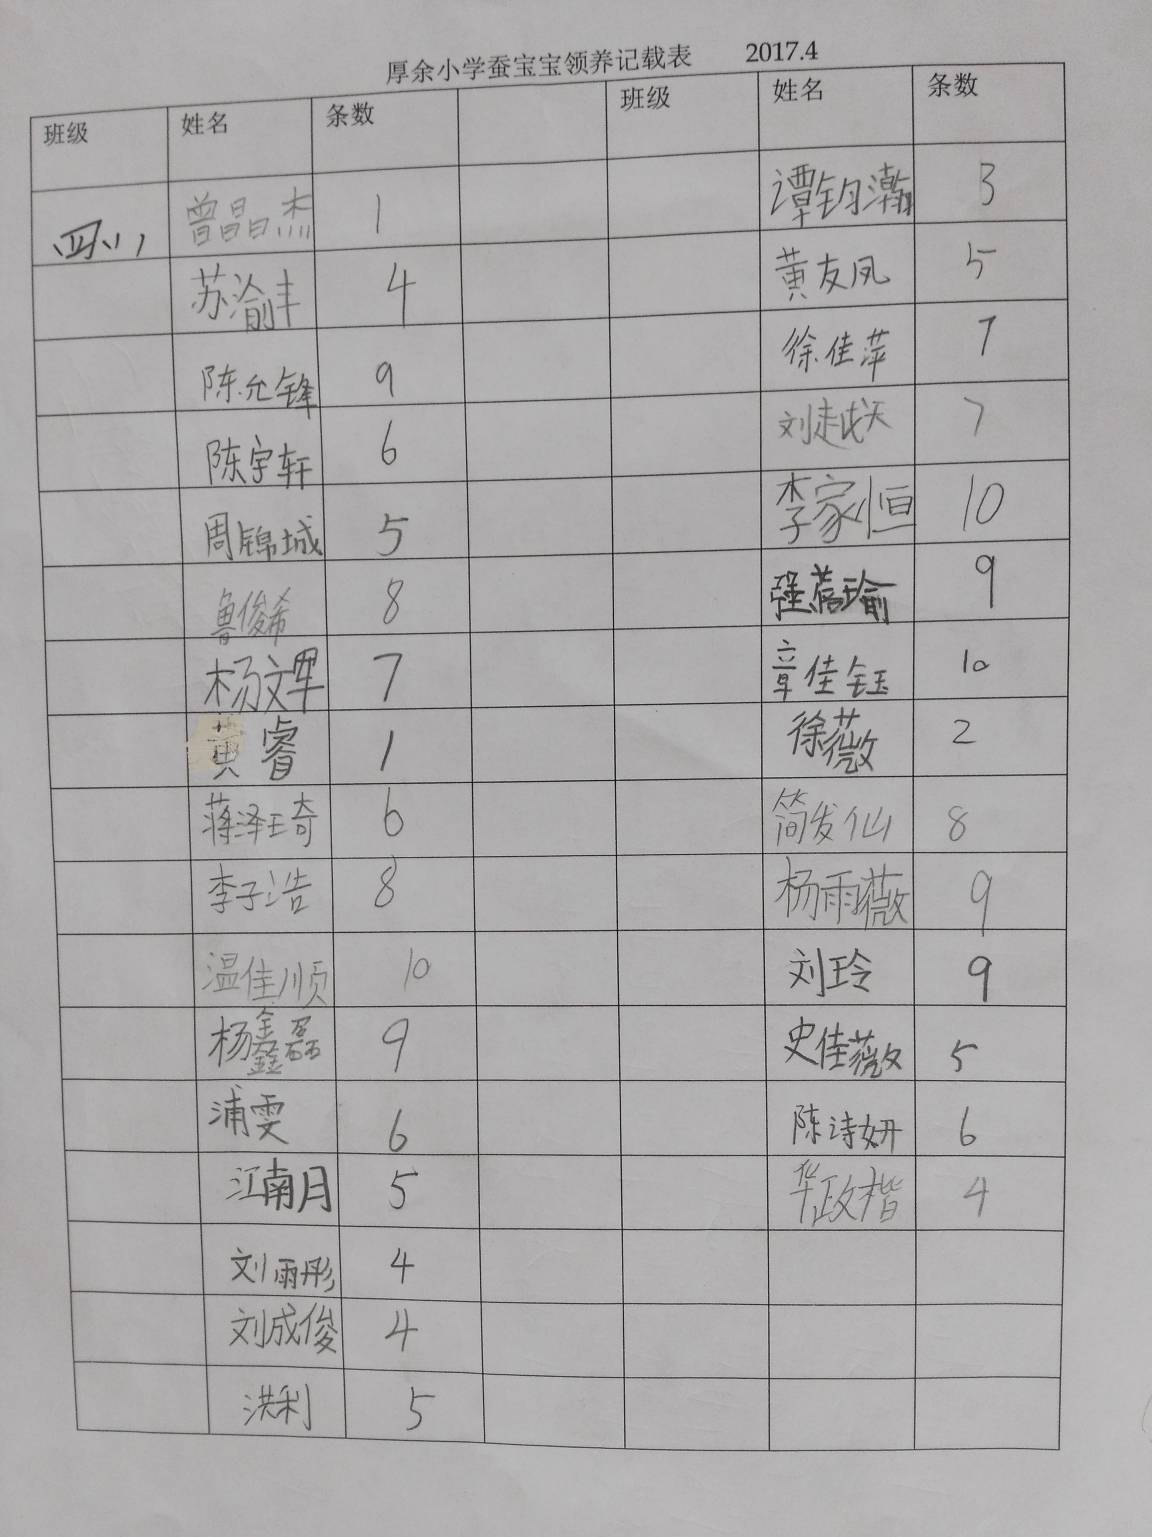 厚余小学蚕宝宝领养记载表 2017.4
班级 姓名 条数 班级 姓名 条数
四(1) 曾晶杰 1 谭钧瀚 3
苏渝丰 4 黄友凤 5
陈允锋 9 徐佳萍 7
陈宇轩 6 刘赵天 7
周锦城 5 李家恒 10
鲁俊希 8 强蓓瑜 9
杨文军 7 章佳钰 10
黄睿 1 徐薇 2
蒋泽琦 6 简发仙 8
李子浩 8 杨雨薇 9
温佳顺 10 刘玲 9
杨鑫磊 9 史佳薇 5
浦雯 6 陈诗妍 6
江南月 5 华政楷 4
刘雨彤 4
刘成俊 4
洪利 5